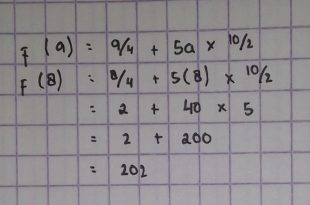 f (a) = a/4 + 5a × 10/2
f (8) = 8/4 + 5(8) × 10/2
= 2 + 40 × 5
= 2 + 200
= 202